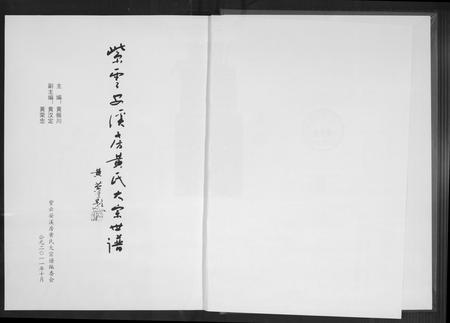 紫云安溪房黄氏大宗世谱
主编：黄振川
副主编：黄汉定
黄荣忠
紫云安溪房黄氏大宗谱编委会
公元二〇一一年十月